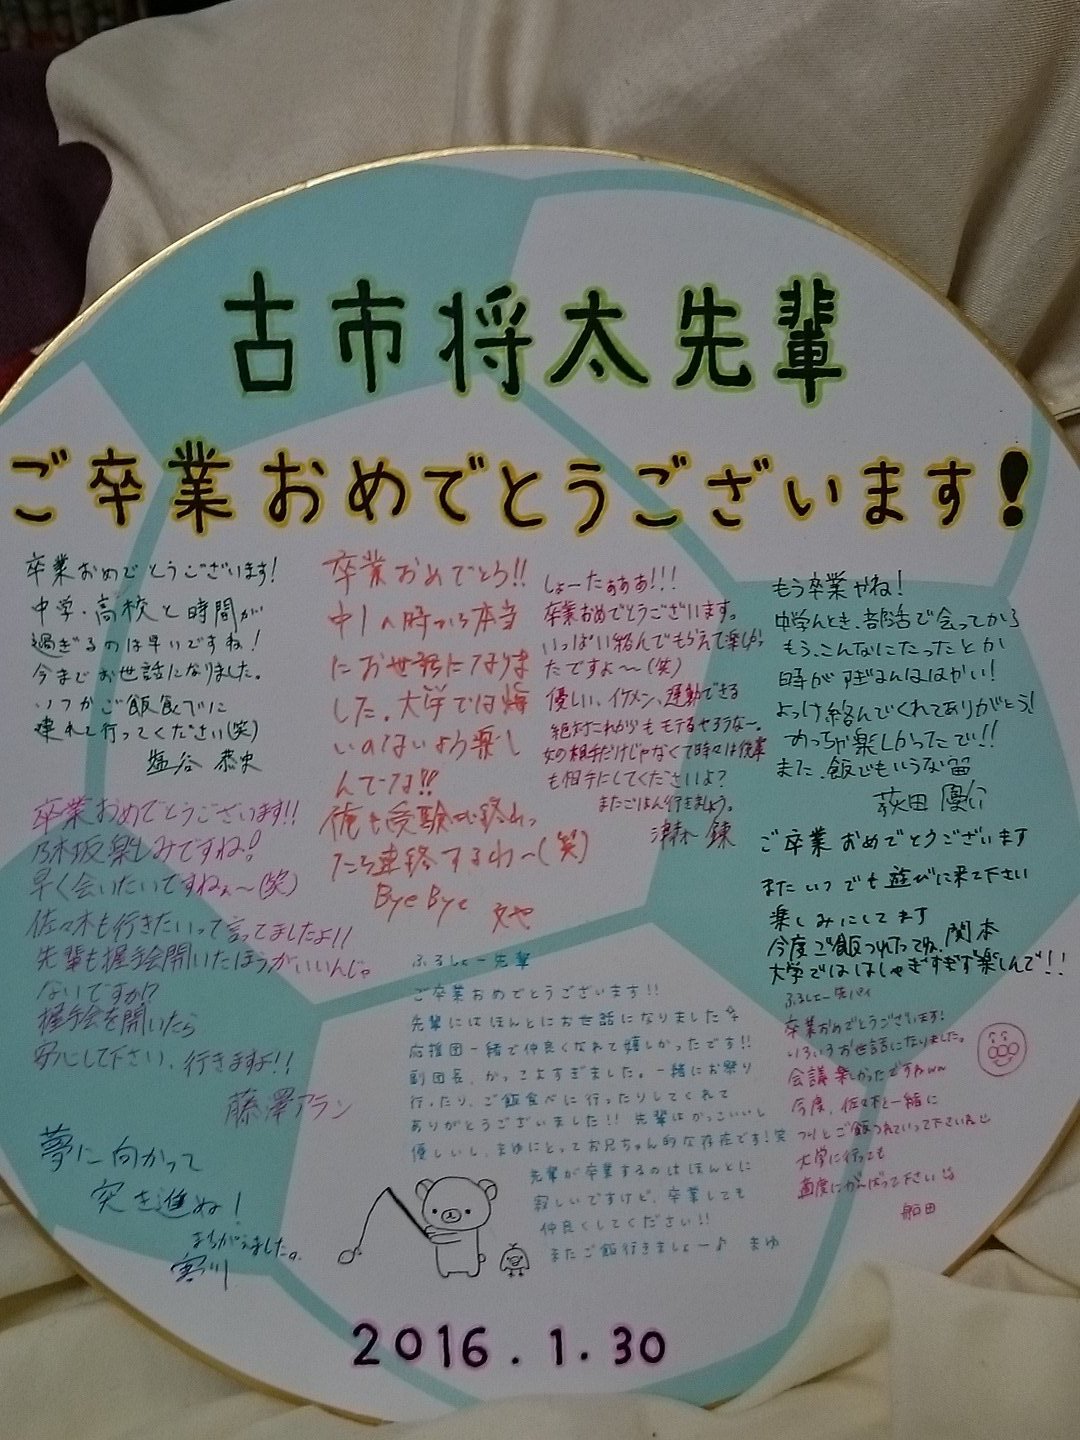 古市将太先輩
ご卒業おめでとうございます!
卒業おめでとうございます!
中学、高校と時間が
過ぎるのは早いですね!
今までお世話になりました。
いつかご飯食べに
連れて行ってください(笑)
塩谷 恭史
卒業おめでとうございます!!
乃木坂楽しみですね!
早く会いたいですねぇ〜(笑)
佐々木も行きたいって言ってましたよ!!
先輩も握手会開いたほうがいいんじゃ
ないですか!?
握手会を開いたら
安心して下さい、行きますよ!!
藤澤アラン
夢に向かって
突き進め!
まちがえました。
寒川
卒業おめでとう!!
中1の時から本当
にお世話になりま
した。大学では悔
いのないよう楽し
んでな!!
俺も受験が終わっ
たら連絡するわ〜(笑)
Bye Bye
文也
しょーたぁぁあ!!!
卒業おめでとうございます。
いっぱい絡んでもらえて楽しかっ
たですよ〜(笑)
優しい、イケメン、運動できる
絶対これからもモテるやろうな〜。
女の相手だけじゃなくて時々は後輩
も相手にしてくださいよ?
またごはん行きましょう。
錬
もう卒業やね!
中学んとき、部活で会ってから
もう、こんなにたったとか
時がすぎんははかい!
よっけ絡んでくれてありがとう!
めっちゃ楽しかったで!!
また、飯でもいうな
荻田 優介
ご卒業おめでとうございます
またいつでも遊びに来て下さい
楽しみにしてます
今度ご飯つれてってね、関本
大学でははしゃぎすぎず楽しんで!!
ふるしょー先輩
ご卒業おめでとうございます!!
先輩にはほんとにお世話になりました
応援団一緒で仲良くなれて嬉しかったです!!
副団長、かっこよすぎました。一緒にお祭り
行ったり、ご飯食べに行ったりしてくれて
ありがとうございました!! 先輩はかっこいいし
優しいし、まゆにとってお兄ちゃん的な存在です!笑
先輩が卒業するのはほんとに
寂しいですけど、卒業しても
仲良くしてください!!
またご飯行きましょー♪ まゆ
ふるしょー先パイ
卒業おめでとうございます!
いろいろお世話になりました。
会議楽しかったですねww
今度、佐々木と一緒に
ご飯つれていって下さいね
大学に行っても
適度にがんばって下さいね
船田
2016.1.30